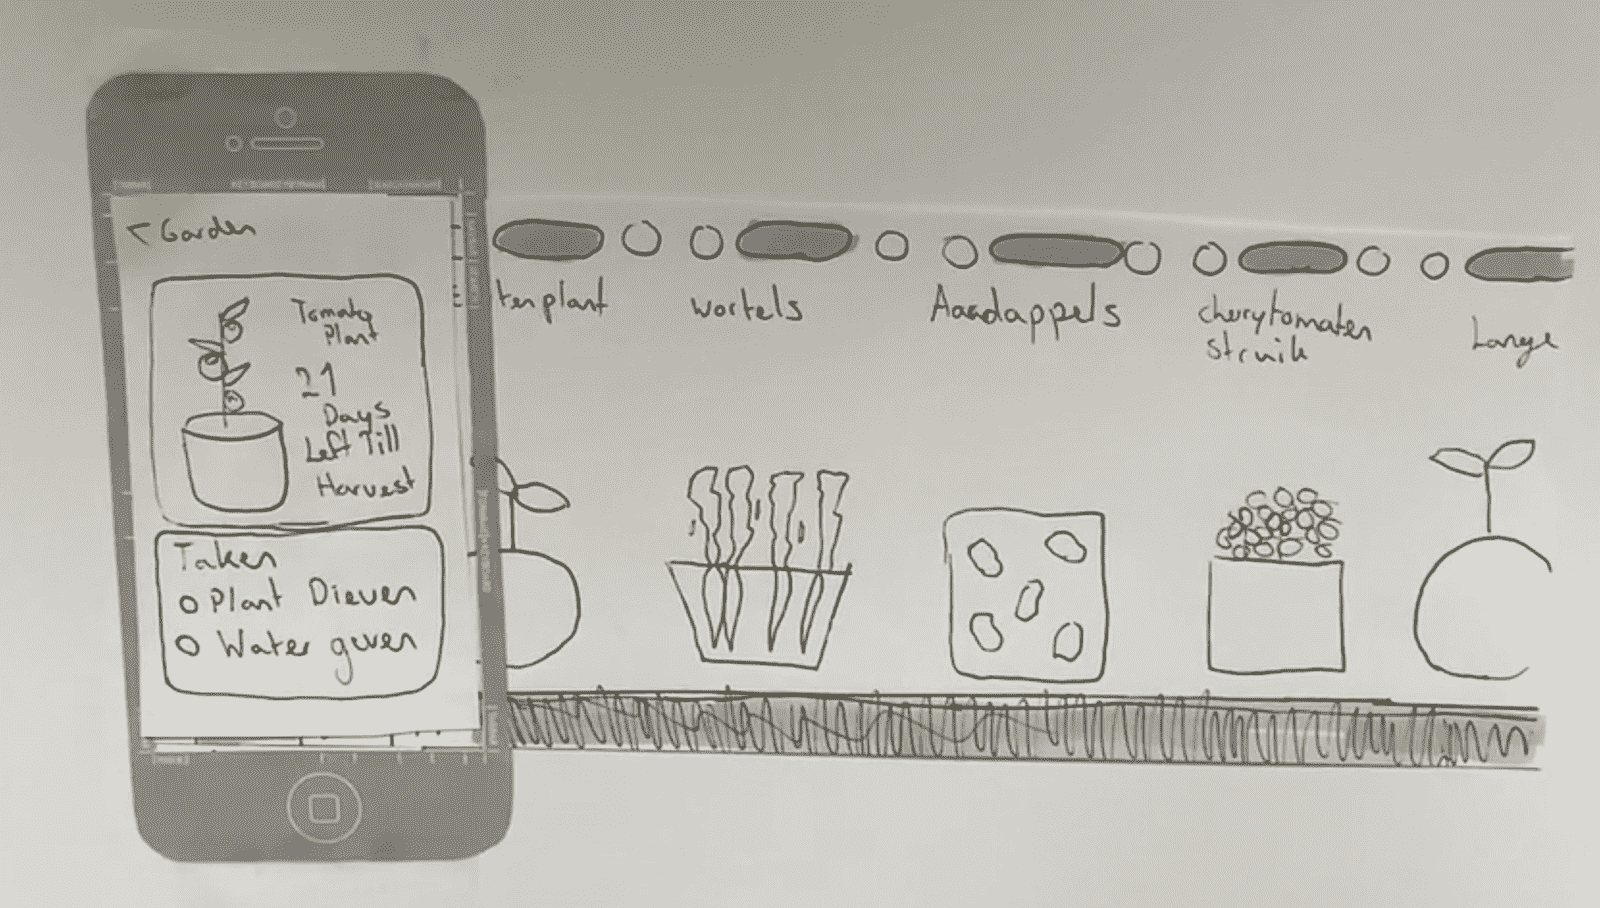 < Garden
Tomato
Plant
21
Days
Left Till
Harvest
Taken
Plant Dieven
Water geven
tenplant
wortels
Aardappels
cherrytomaten
struik
Lange